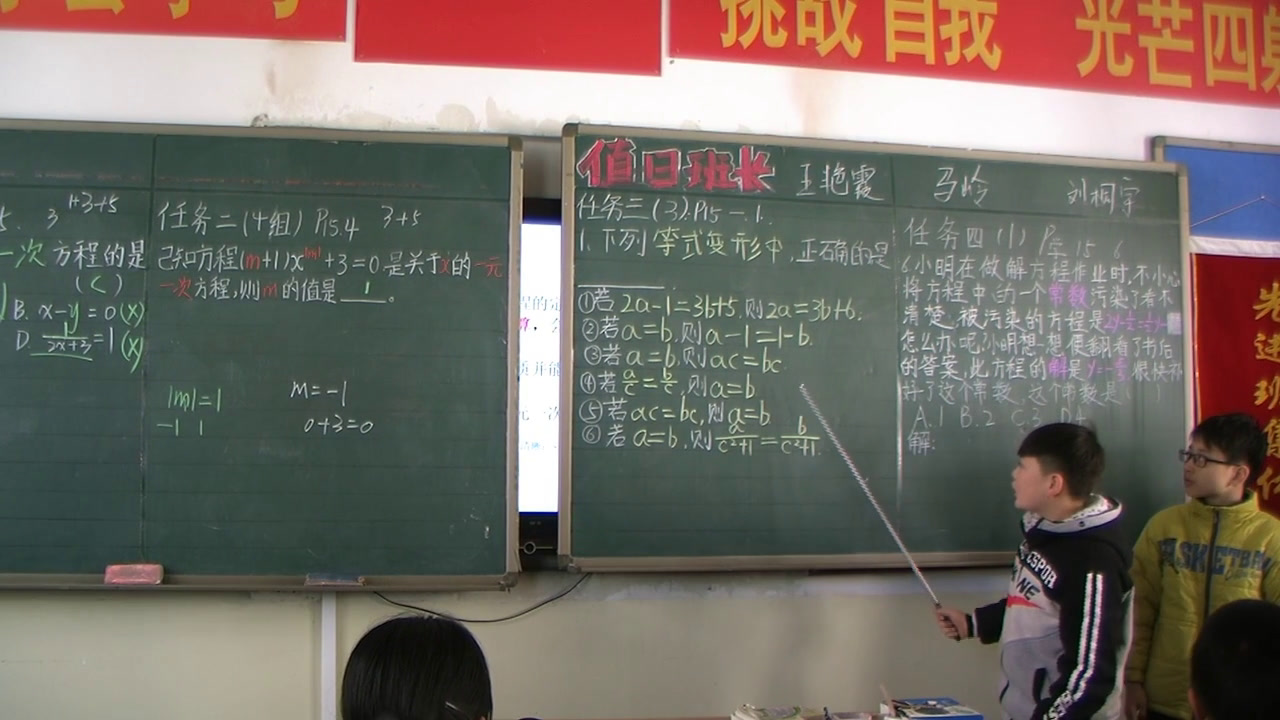 挑战自我 光芒四射
5. 3 1+3+5
一次方程的是
(C)
B. x-y=0(x)
D. 1/2x+3=1(x)
任务二(4组) P15.4 3+5
已知方程(m+1)x^|m|+3=0是关于x的一元
一次方程,则m的值是 1 。
|m|=1
-1 1
m=-1
0+3=0
值日班长 王艳霞 马岭 刘桐宇
任务三(3).P15-1.
1.下列等式变形中,正确的是
①若2a-1=3b+5,则2a=3b+6.
②若a=b,则a-1=1-b.
③若a=b,则ac=bc.
④若a/c=b/c,则a=b
⑤若ac=bc,则a=b
⑥若a=b,则a/c²+1=b/c²+1.
任务四(1) P 15 6
6.小明在做解方程作业时,不小心
将方程中的一个常数污染了看不
清楚,被污染的方程是
怎么办呢,小明想一想便翻看了书后
的答案,此方程的解是 很快补
好了这个常数,这个常数是( )
A.1 B.2 C.3 D.4
解:
ESPOR
NE
BASKETBALL
先进班集体